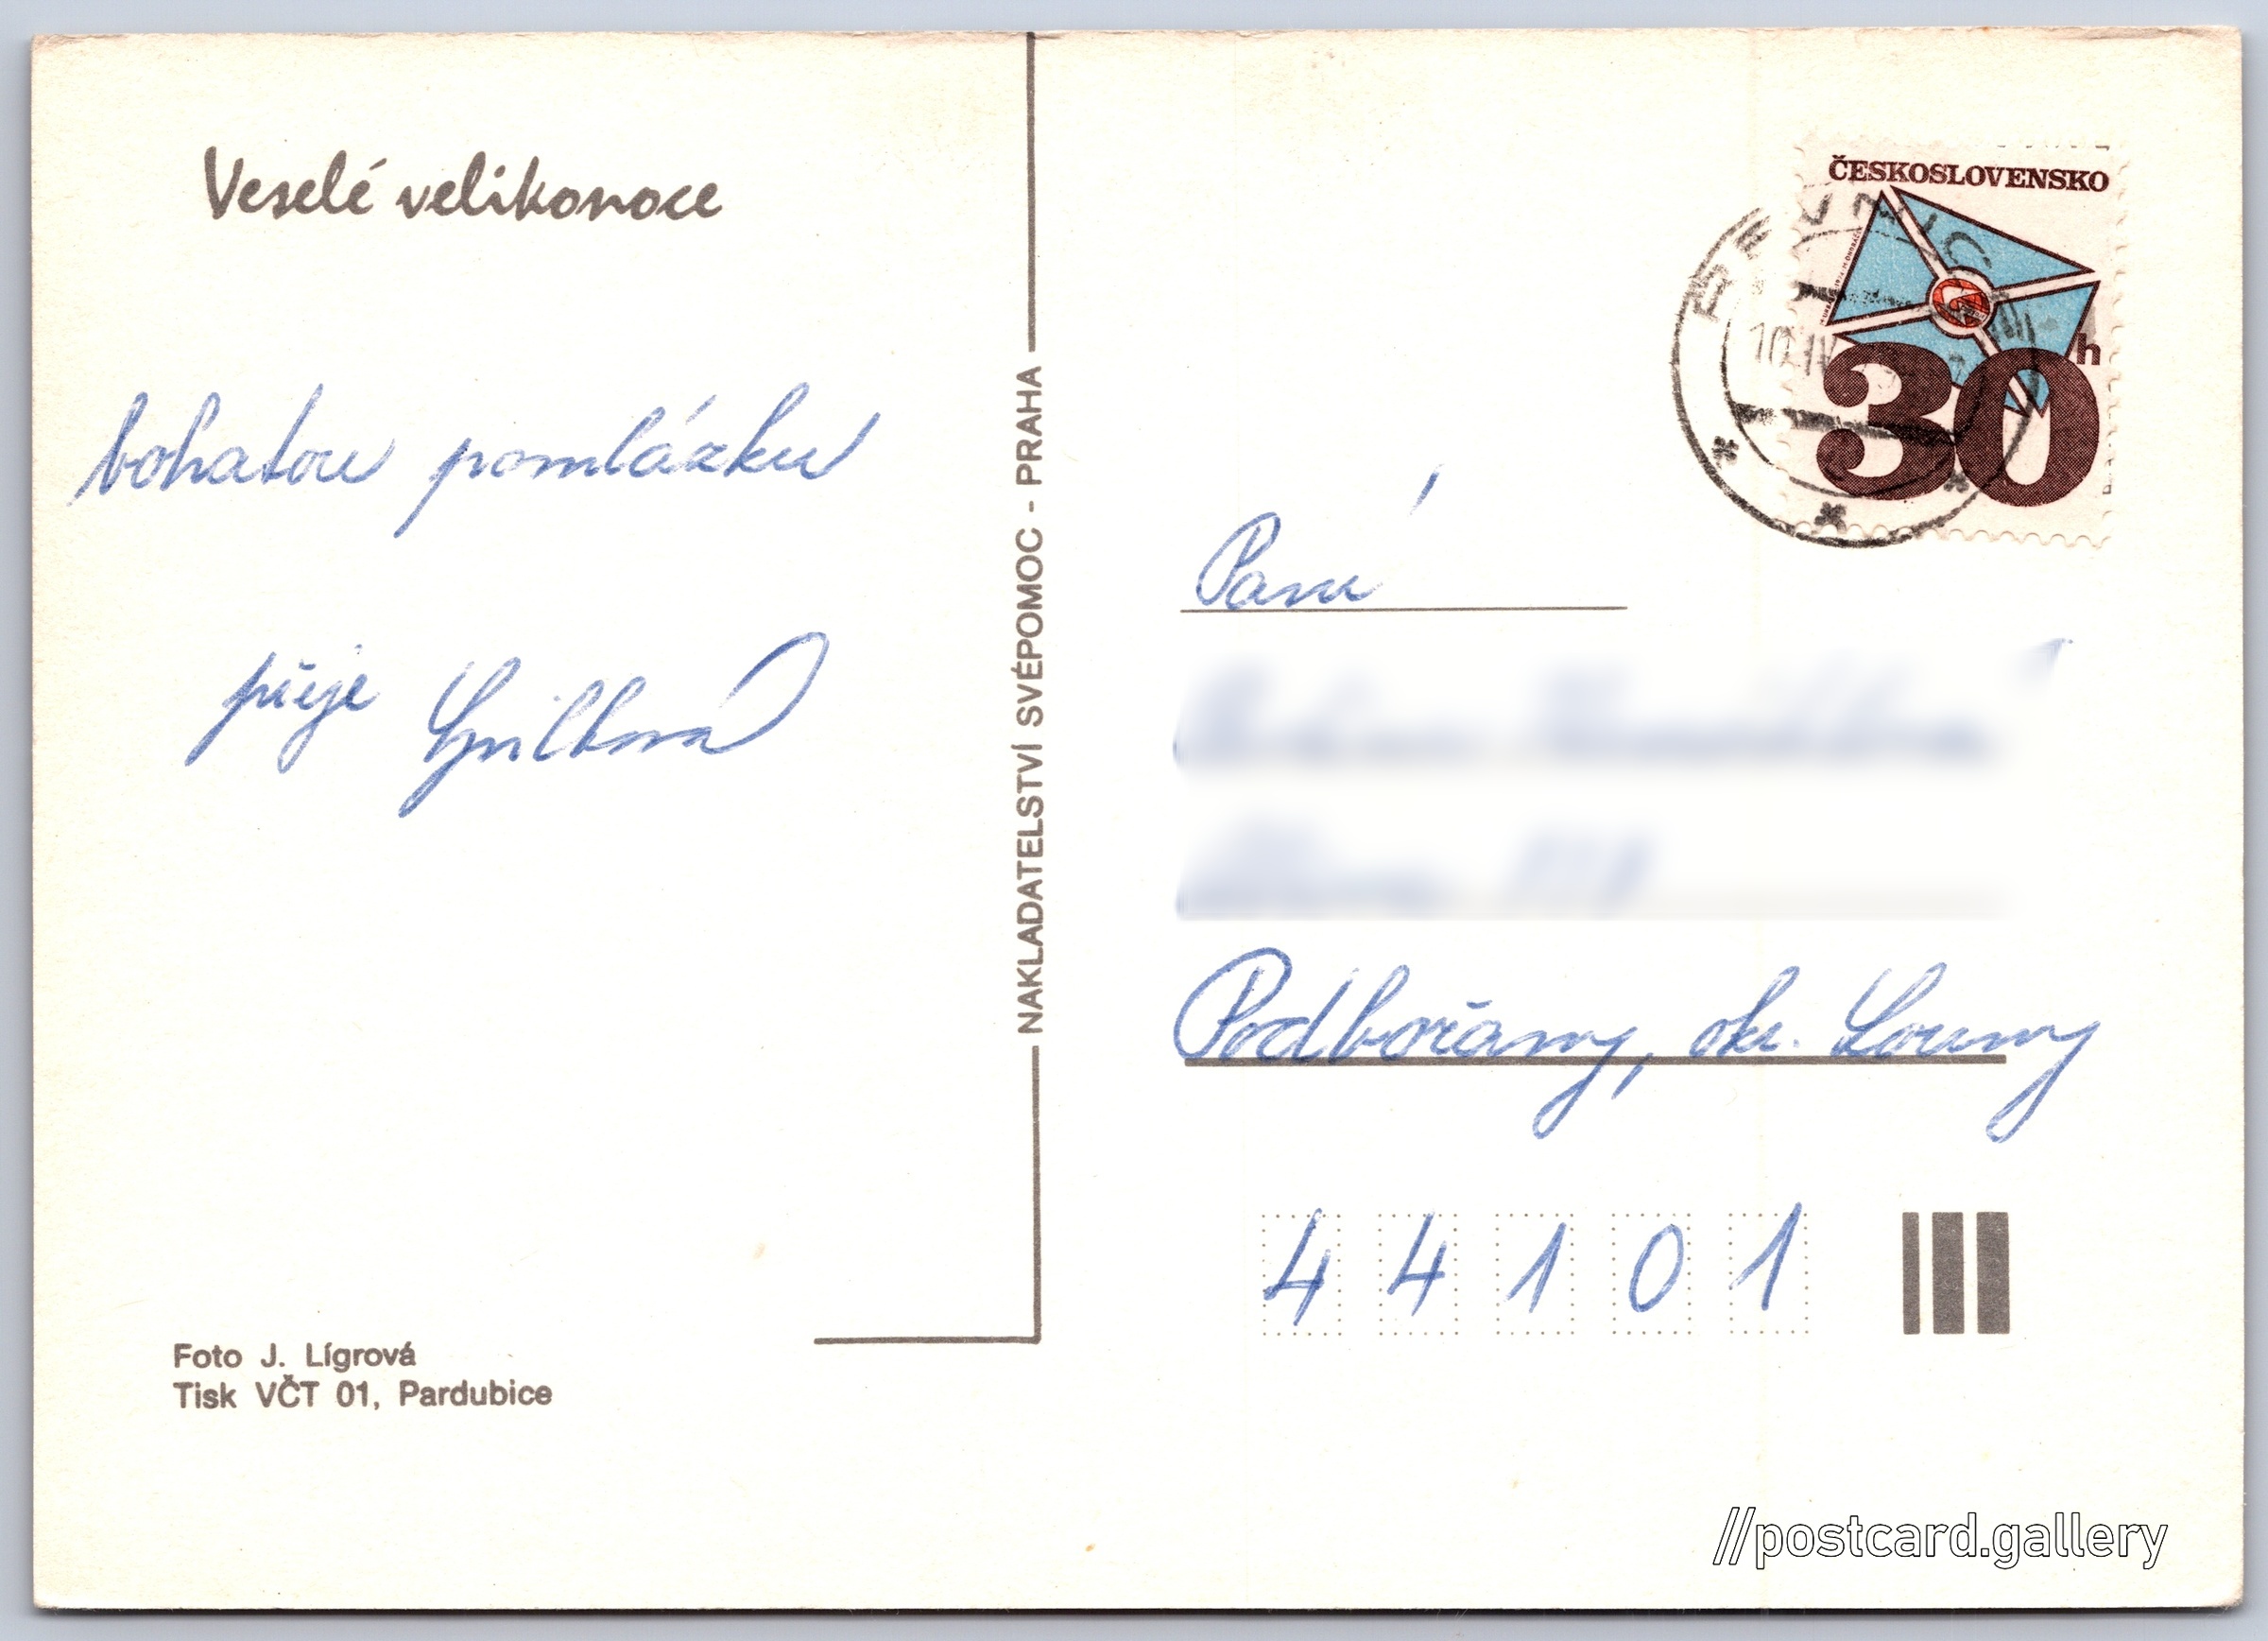 Veselé velikonoce
bohatou pomlázku
přeje
NAKLADATELSTVÍ SVÉPOMOC - PRAHA
Foto J. Lígrová
Tisk VČT 01, Pardubice
ČESKOSLOVENSKO
30 h
Paní
Podbořany, okr. Louny
44101
//postcard.gallery